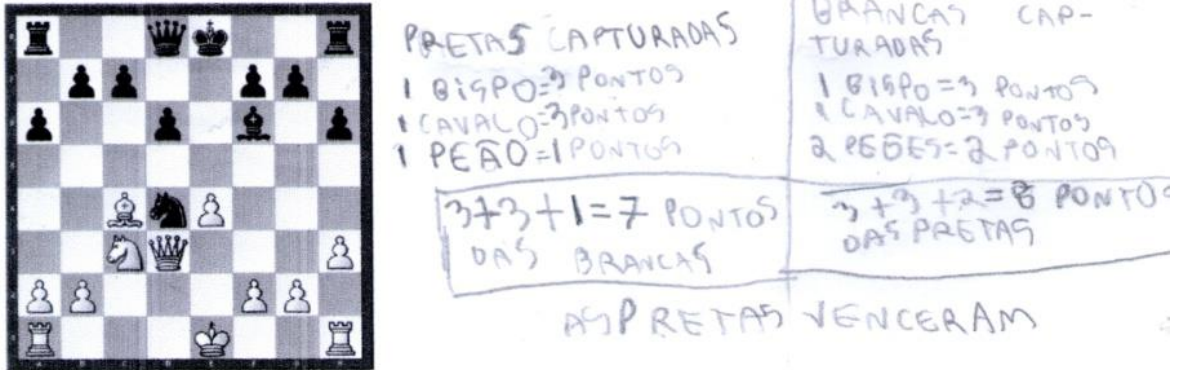 PRETAS CAPTURADAS
1 BISPO=3 PONTOS
1 CAVALO=3PONTOS
1 PEÃO=1PONTOS
3+3+1=7 PONTOS
DAS BRANCAS
BRANCAS CAP-
TURADAS
1 BISPO=3 PONTOS
1 CAVALO=3 PONTOS
2 PEÕES=2 PONTOS
3+3+2=8 PONTOS
DAS PRETAS
AS PRETAS VENCERAM